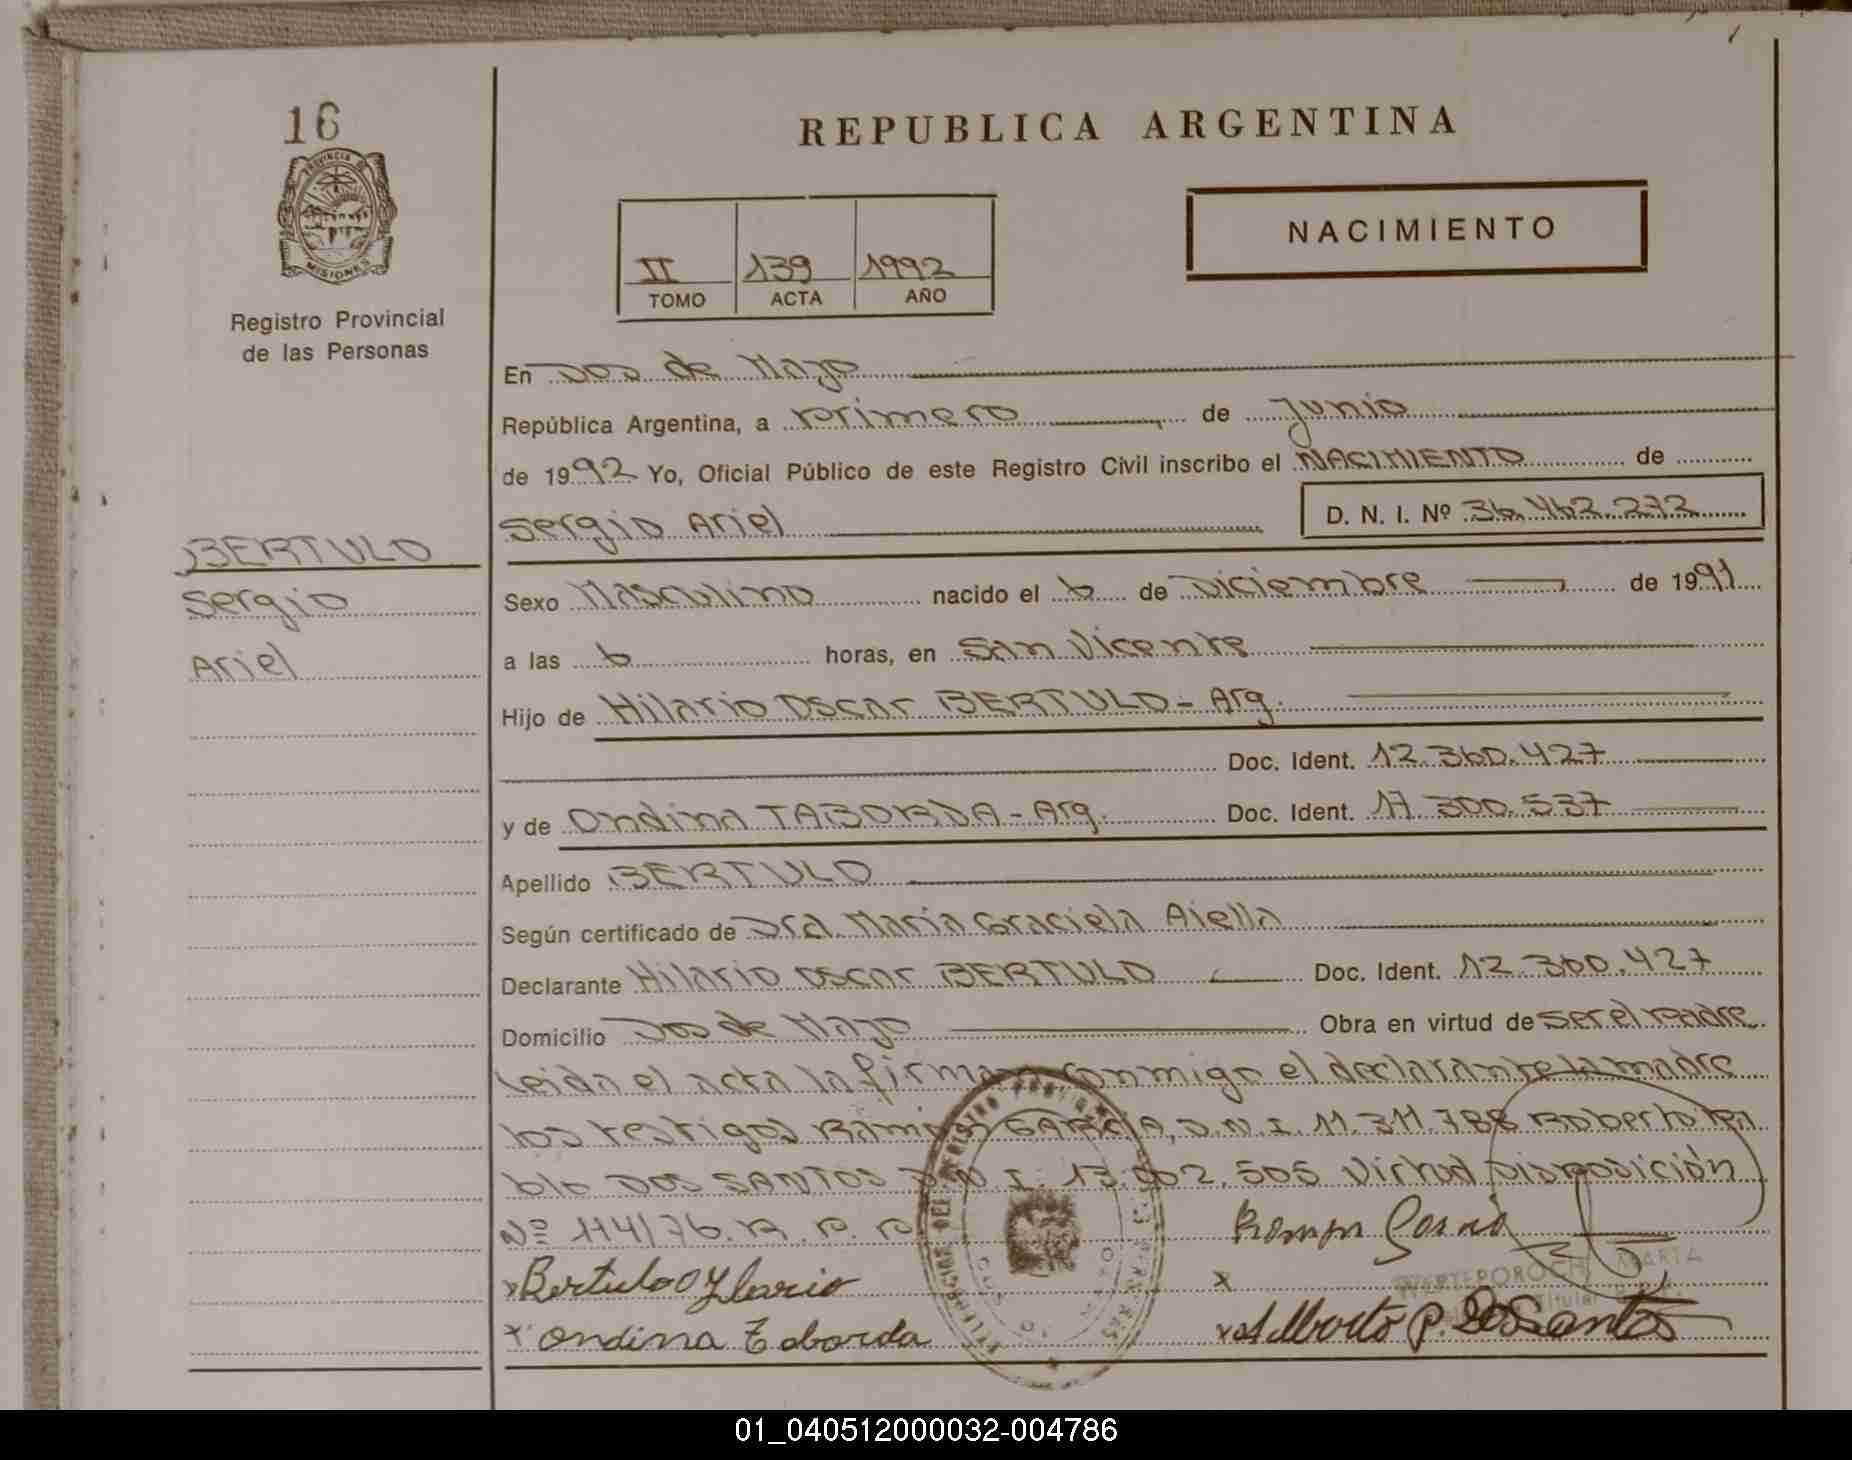 16
PROVINCIA DE
MISIONES
Registro Provincial
de las Personas
BERTULO
Sergio
Ariel
REPUBLICA ARGENTINA
NACIMIENTO
II 139 1992
TOMO ACTA AÑO
En Dos de Mayo
República Argentina, a primero de Junio
de 1992 Yo, Oficial Público de este Registro Civil inscribo el NACIMIENTO de
Sergio Ariel D. N. I. Nº 36.462.272
Sexo Masculino nacido el 6 de Diciembre de 1991
a las 6 horas, en San Vicente
Hijo de Hilario Oscar BERTULO - Arg.
Doc. Ident. 12.360.427
y de Ondina TABORDA - Arg. Doc. Ident. 17.300.537
Apellido BERTULO
Según certificado de Dra. Maria Graciela Aiella
Declarante Hilario Oscar BERTULO Doc. Ident. 12.360.427
Domicilio Dos de Mayo Obra en virtud de ser el padre
Leida el acta la firman conmigo el declarante la madre
los testigos Ramon GARCIA, D.N.I. 11.311.788 Roberto Pa
blo DOS SANTOS D.N.I. 13.002.505 Virtud Disposición
Nº 114/76. R. P. P.
Ramon Garcia
x Bertulo Ylario x
x Ondina Taborda x Alberto P. Dos Santos
MARTA
Titular
01_040512000032-004786